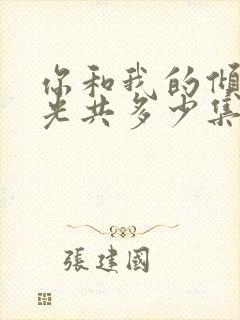 你和我的傾
光共多少集
張建國